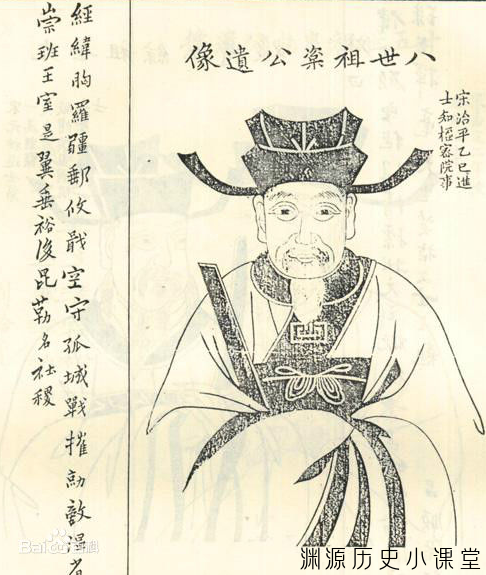 八世祖楶公遺像
宋治平乙巳進
士知樞密院事
經緯胸羅疆郵攸戢空守孤城戰摧勍敵
崇班王室是翼垂裕後昆勒名社稷
Bai百科
渊源历史小课堂